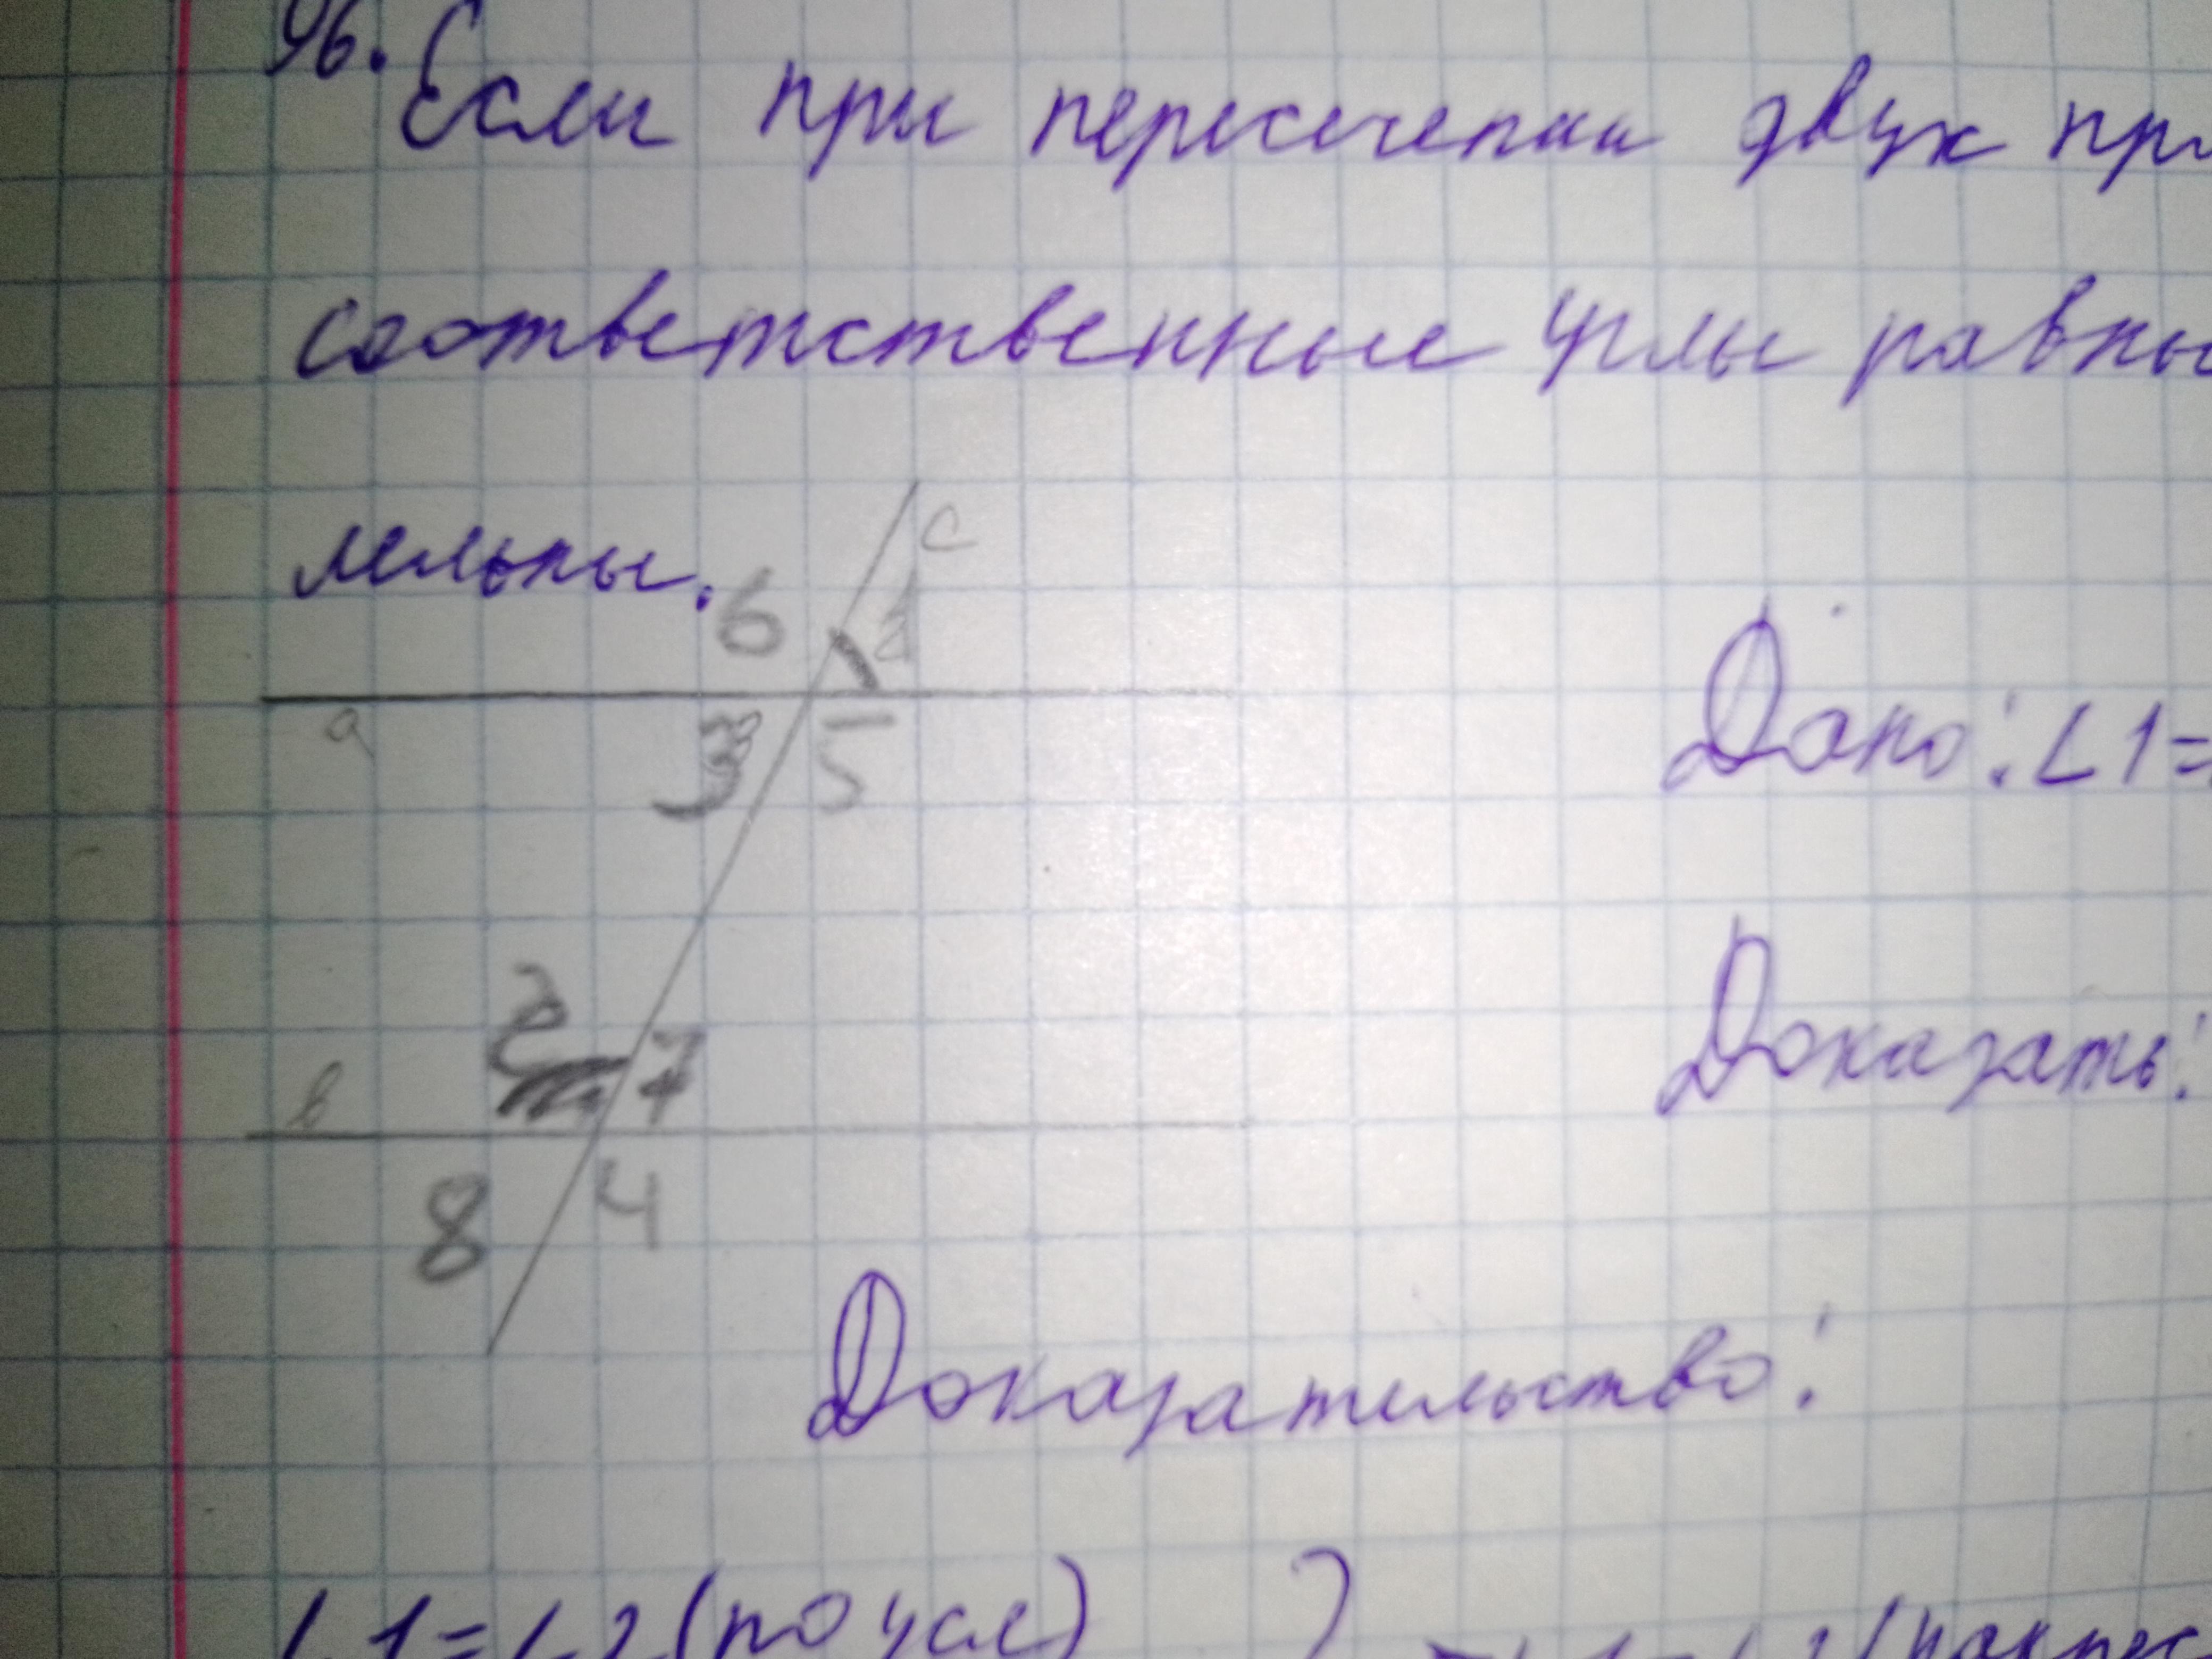 96. Если при пересечении двух пр
соответственные углы равны
лельны.
6
c
1
a
3
5
Дано: ∠1=
2
7
в
Доказать:
8
4
Доказательство:
∠1=∠2 (по усл)